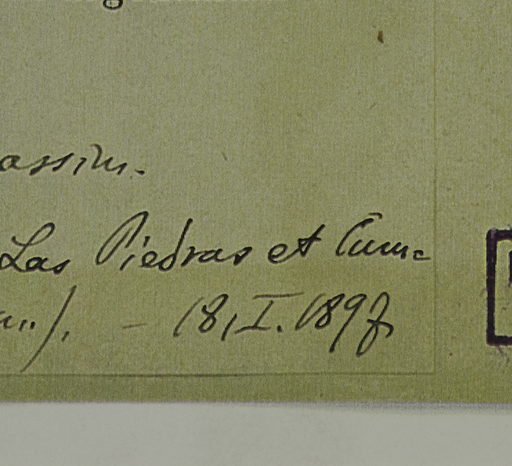 assim.
Las Piedras et Cum-
). – 18, I. 1897